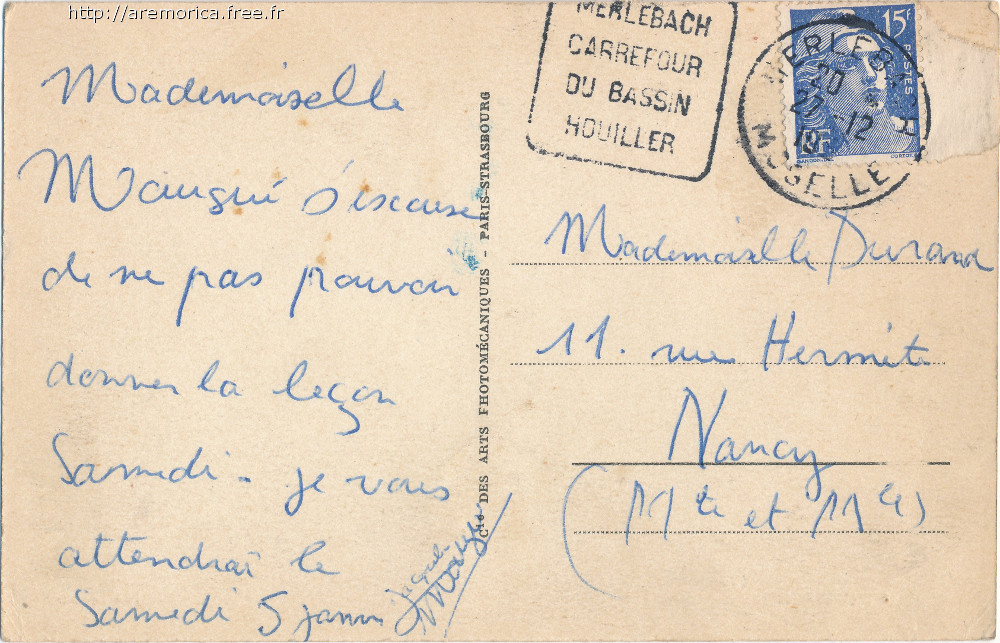 http://aremorica.free.fr
Mademoiselle
Maugué s'excuse
de ne pas pouvoir
donner la leçon
Samedi. je vous
attendrai le
Samedi 5 janv
Cie DES ARTS PHOTOMÉCANIQUES - PARIS-STRASBOURG
MERLEBACH
CARREFOUR
DU BASSIN
HOUILLER
15F
POSTES
RF
MERLEBACH
20
27-12
MOSELLE
Mademoiselle Durand
11. rue Hermite
Nancy
(Mlle et Mlle)